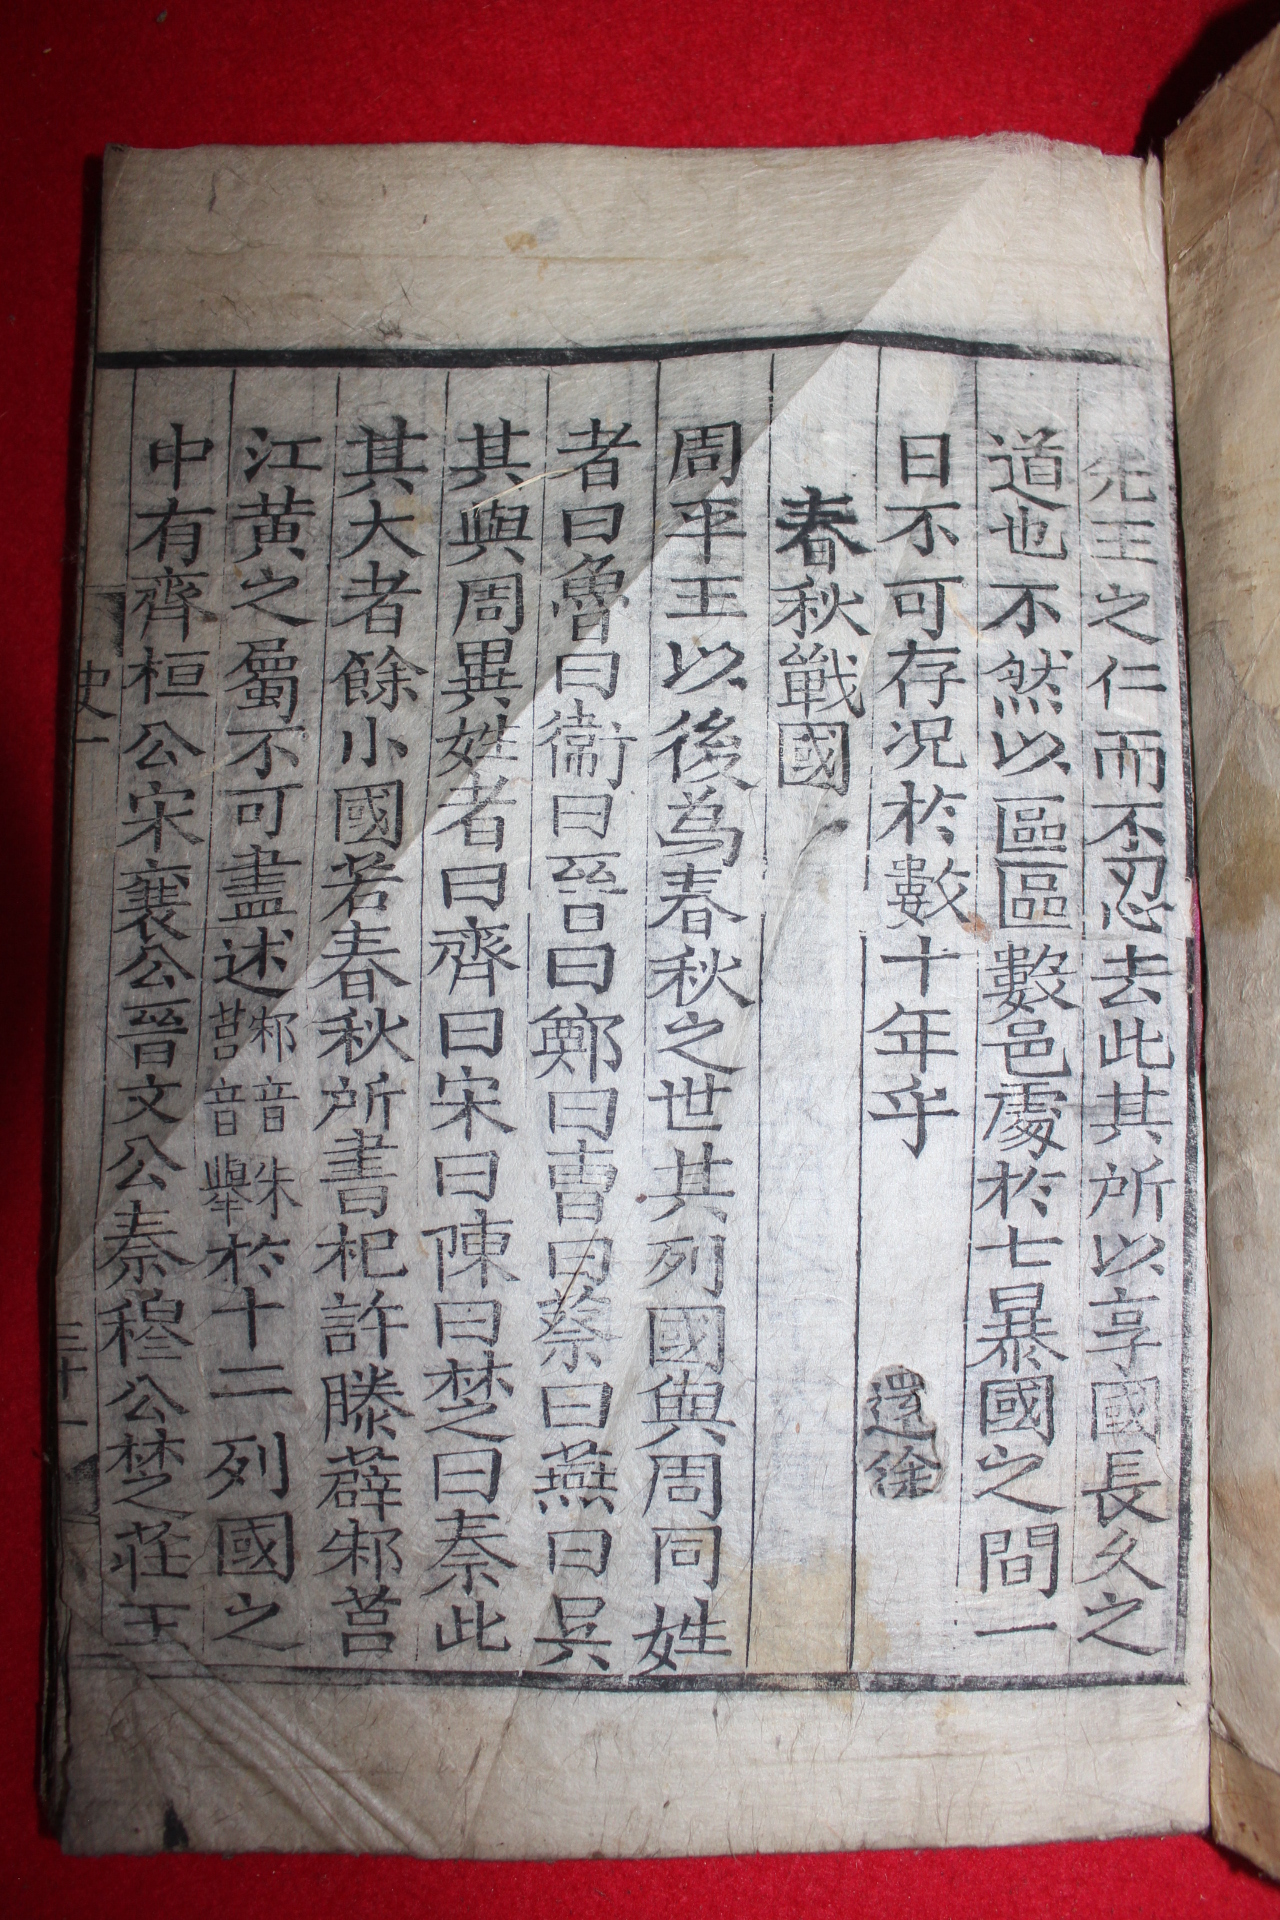 先王之仁而不忍去此其所以享國長久之
道也不然以區區數邑處於七暴國之間一
日不可存況於數十年乎
還徐
春秋戰國
周平王以後為春秋之世其列國與周同姓
者曰魯曰衞曰晉曰鄭曰曹曰蔡曰燕曰吳
其與周異姓者曰齊曰宋曰陳曰楚曰秦此
其大者餘小國若春秋所書杞許滕薛邾莒
江黃之屬不可盡述邾音朱莒音擧於十二列國之
中有齊桓公宋襄公晉文公秦穆公楚莊王
史一
三十一